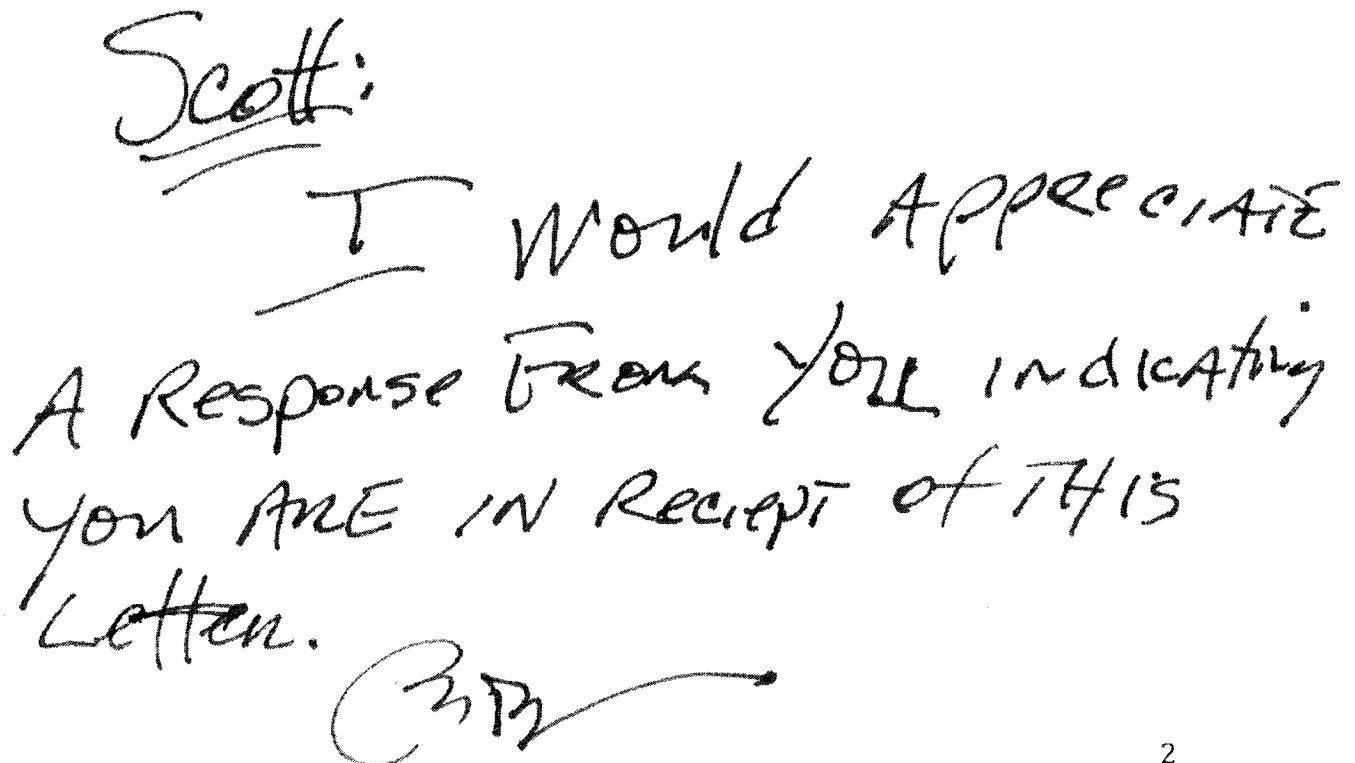 Scott:
I Would Appreciate
A Response From You indicating
you ARE IN Reciept of THIS
Letter.
2